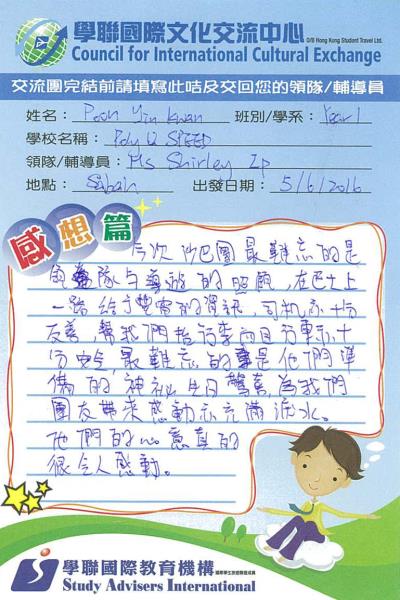 學聯國際文化交流中心
D/B Hong Kong Student Travel Ltd.
Council for International Cultural Exchange
交流團完結前請填寫此咭及交回您的領隊/輔導員
姓名： Poon Yin Kwan 班別/學系： Year 1
學校名稱： Poly U SPEED
領隊/輔導員： Ms Shirley Ip
地點： Sabah 出發日期： 5/6/2016
感想篇
今次沙巴團最難忘的是
領隊與導遊的照顧，在巴士上
一路給予豐富的資訊，司机亦十分
友善，幫我們抬行李而且行車亦十
分安全，最難忘的是他們準
備的神祕生日驚喜，為我們
團友帶來感動亦充滿淚水。
他們的心意真的
很令人感動。
學聯國際教育機構
Study Advisers International